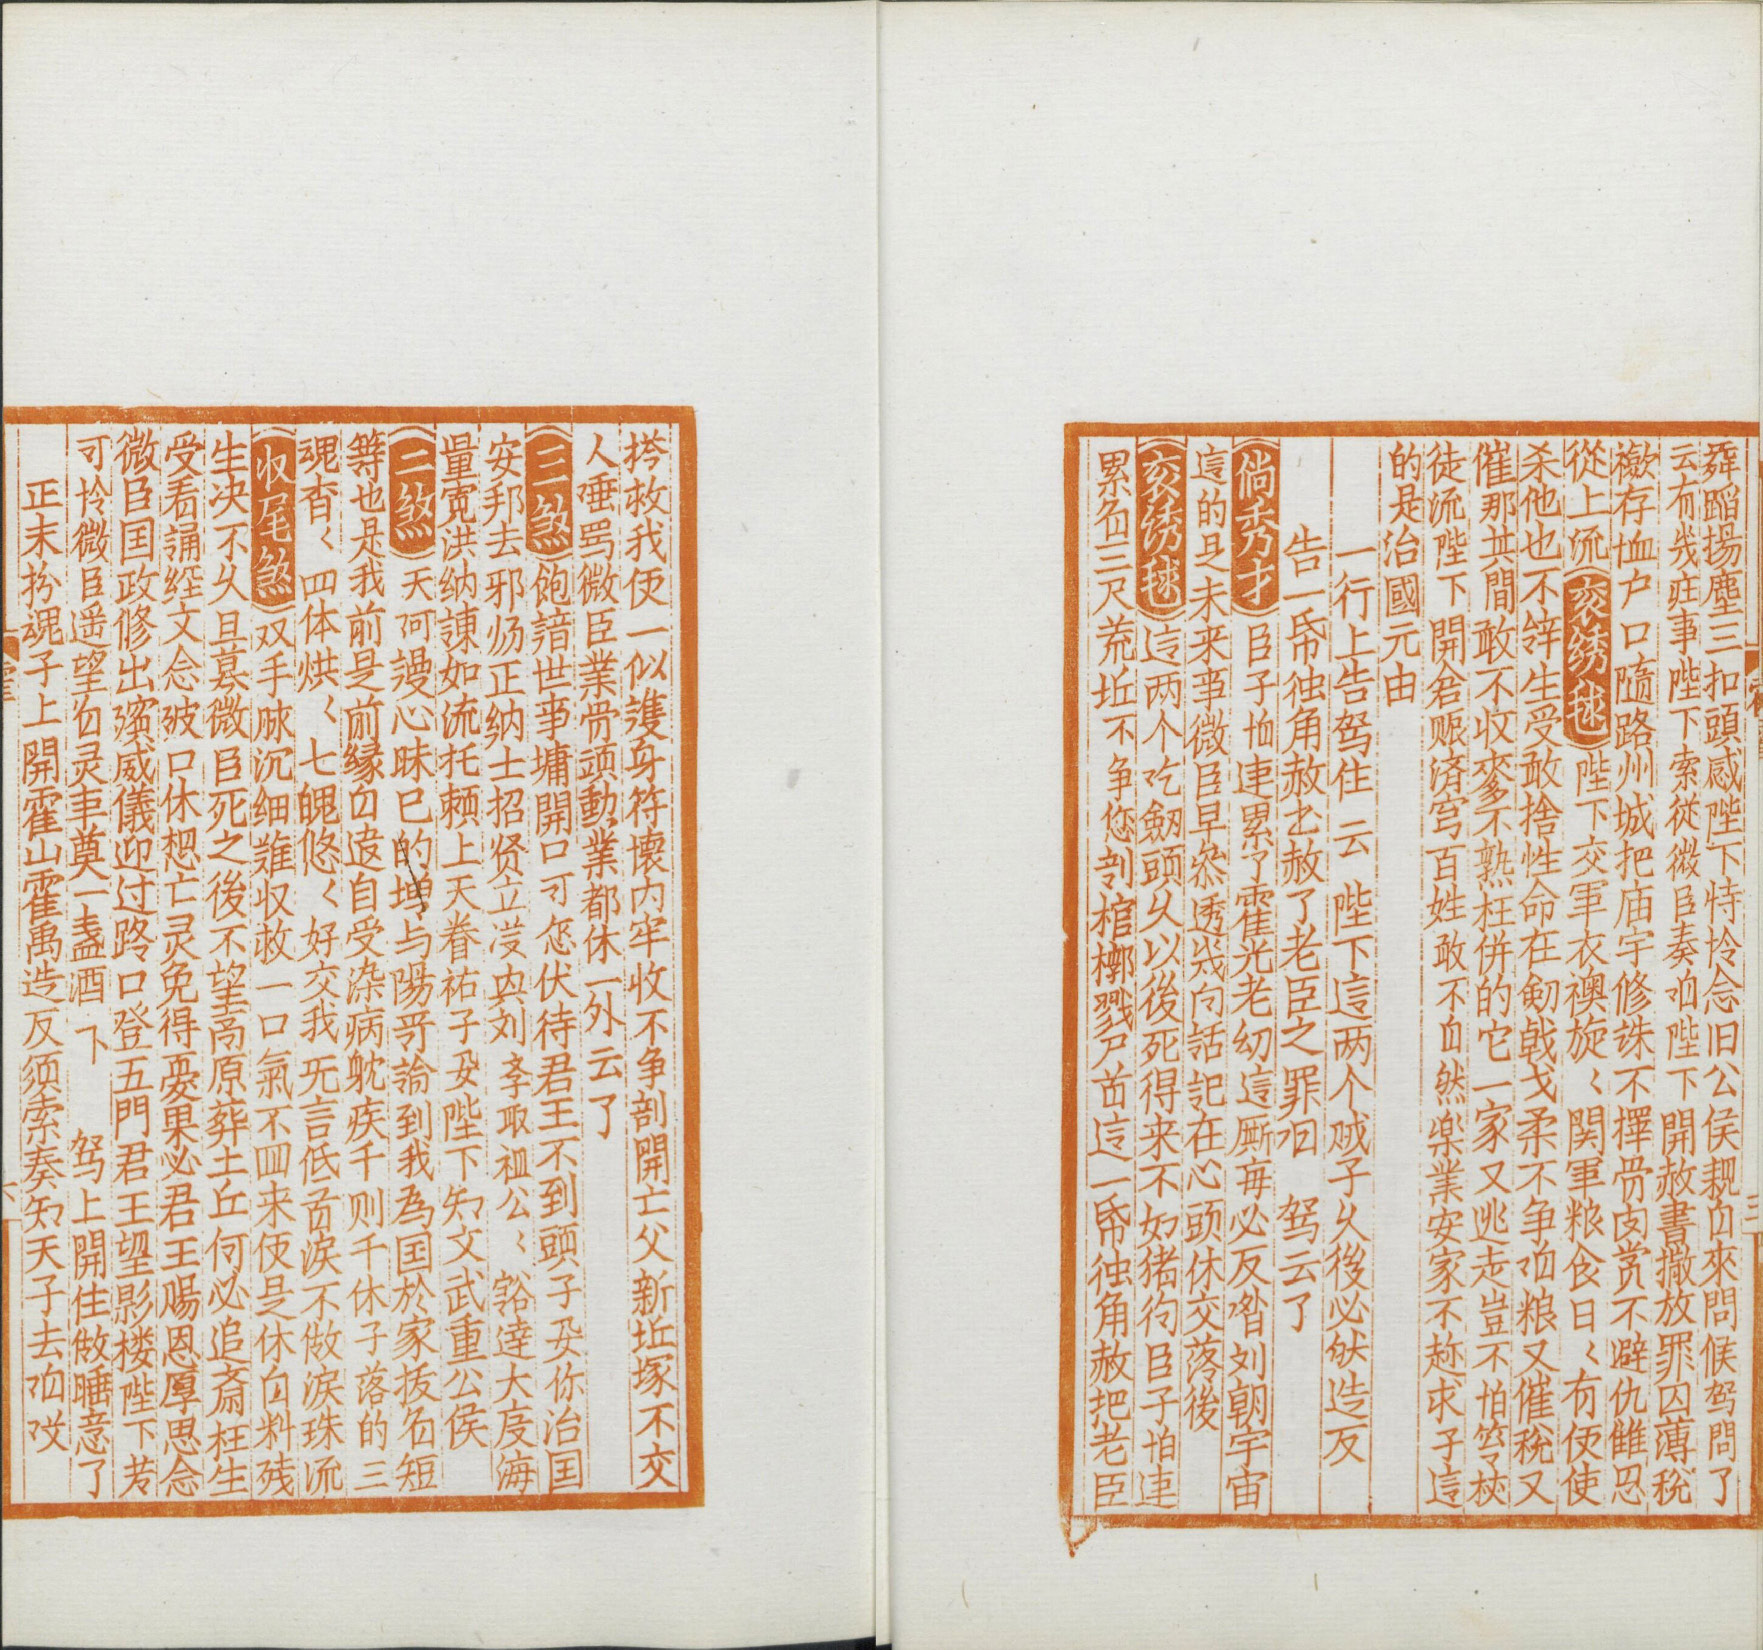 舜蹈揚塵三扣頭感陛下特怜念旧公侯親自來問候驾問了
云有㡬庄事陛下索従微臣奏咱陛下開赦書撒放罪囚薄税
𭭕存恤户口隨路州城把庙宇修誅不擇骨肉赏不避仇雠恩
從上流 衮绣毬 陛下交軍衣襖旋〻関軍粮食日〻有便使
杀他也不辝生受敢捨性命在剱戟戈柔不争咱粮又催税又
催那其間敢不收麥不熟枉併的它一家又迯走岂不怕筊杖
徒流陛下開仓赈済穹百姓敢不自然楽業安家不趂求子這
的是治國元由
一行上告驾住云陛下這两个贼子久後必然造反
告一帋独角赦书赦了老臣之罪咱 驾云了
倘秀才 臣子恤连累了霍光老幼這厮每必反㗳刘朝宇宙
這的是未来事微臣早叅透㡬句話記在心頭休交落後
衮绣毬 這两个吃剱頭久以後死得来不如猪狗臣子怕連
累名三尺荒坵不争您剖棺槨戮尸首这一帋独角赦把老臣
搭救我便一似護身符懐内牢收不争剖開亡父新坵塚不交
人唾骂微臣業骨頭動業都休一外云了
三煞 饱諳世事慵開口可怎伏待君王不到頭子㚥你治国
安邦去邪归正纳士招贤立汉兴刘孝取祖公〻豁達大度海
量寛洪纳諌如流托頼上天眷祐子㚥陛下知文武重公侯
二煞 天阿謾心昧已的増与陽寿論到我為国於家拔名短
筭也是我前是前縁自遠自受染病躭疾千则千休子落的三
魂杳〻四体烘〻七魄悠〻好交我旡言低首涙不做涙珠流
収尾煞 双手脉沉细難収救一口氣不回来便是休自料残
生决不久旦暮微臣死之後不望高原葬土丘何必追斎枉生
受看誦經文念破口休想亡灵免得憂果必君王赐恩厚思念
微臣国政修出殯威儀迎过路口登五門君王望影楼陛下若
可怜微臣遥望自灵車奠一盏酒 下 驾上開住做睡意了
正末扮魂子上開霍山霍禹造反须索奏知天子去咱哎